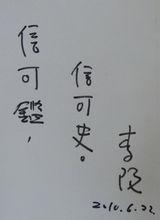 信可鑑，
信可史。
李
2010.6.22